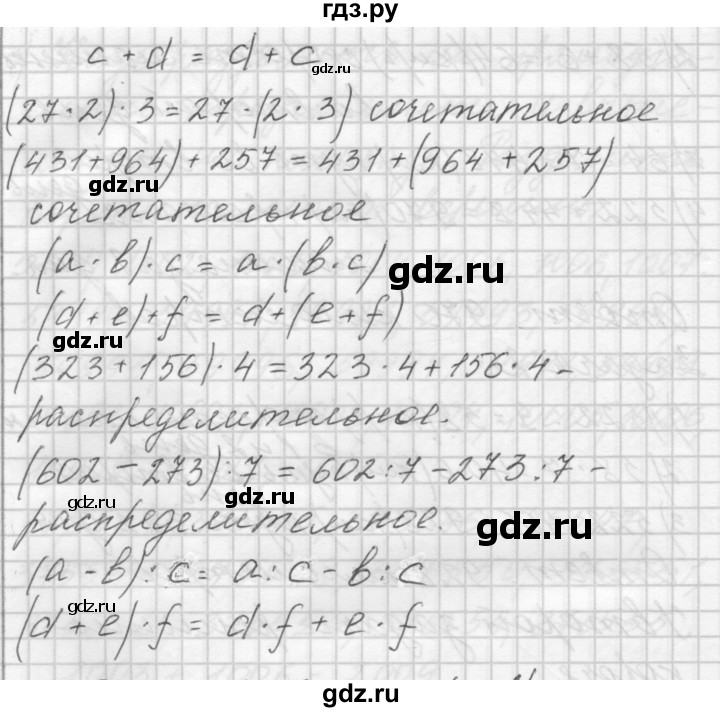 гдз.ру
c + d = d + c
gdz.ru
(27 · 2) · 3 = 27 · (2 · 3) сочетательное
(431 + 964) + 257 = 431 + (964 + 257)
gdz.ru
сочетательное
(a · b) · c = a · (b · c)
gdz.ru
(d + e) + f = d + (e + f)
gdz.ru
(323 + 156) · 4 = 323 · 4 + 156 · 4 –
распределительное.
(602 – 273) : 7 = 602 : 7 – 273 : 7 –
gdz.ru
gdz.ru
распределительное.
gdz.ru
(a – b) : c = a : c – b : c
gdz.ru
(d + e) · f = d · f + e · f
gdz.ru